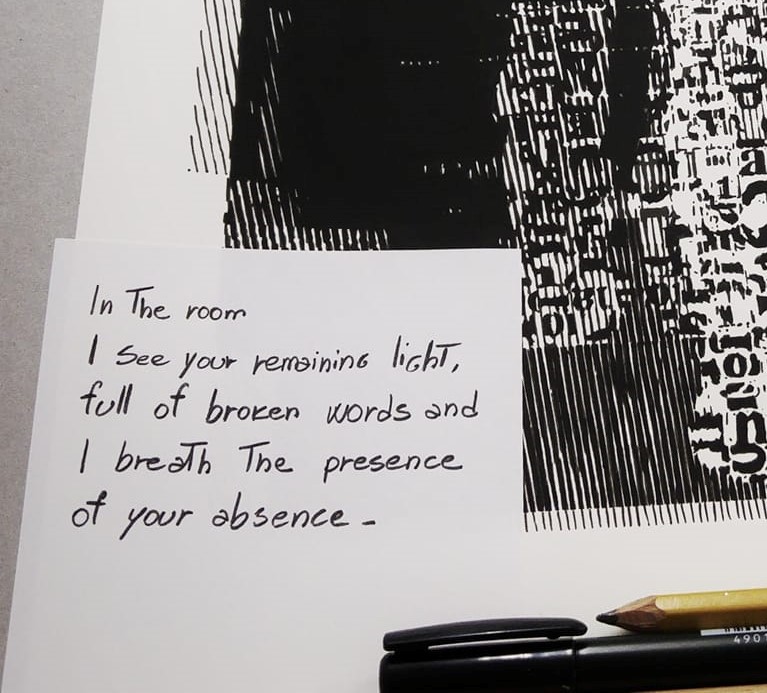 In The room
I see your remaining light,
full of broken words and
I breath The presence
of your absence -
4901